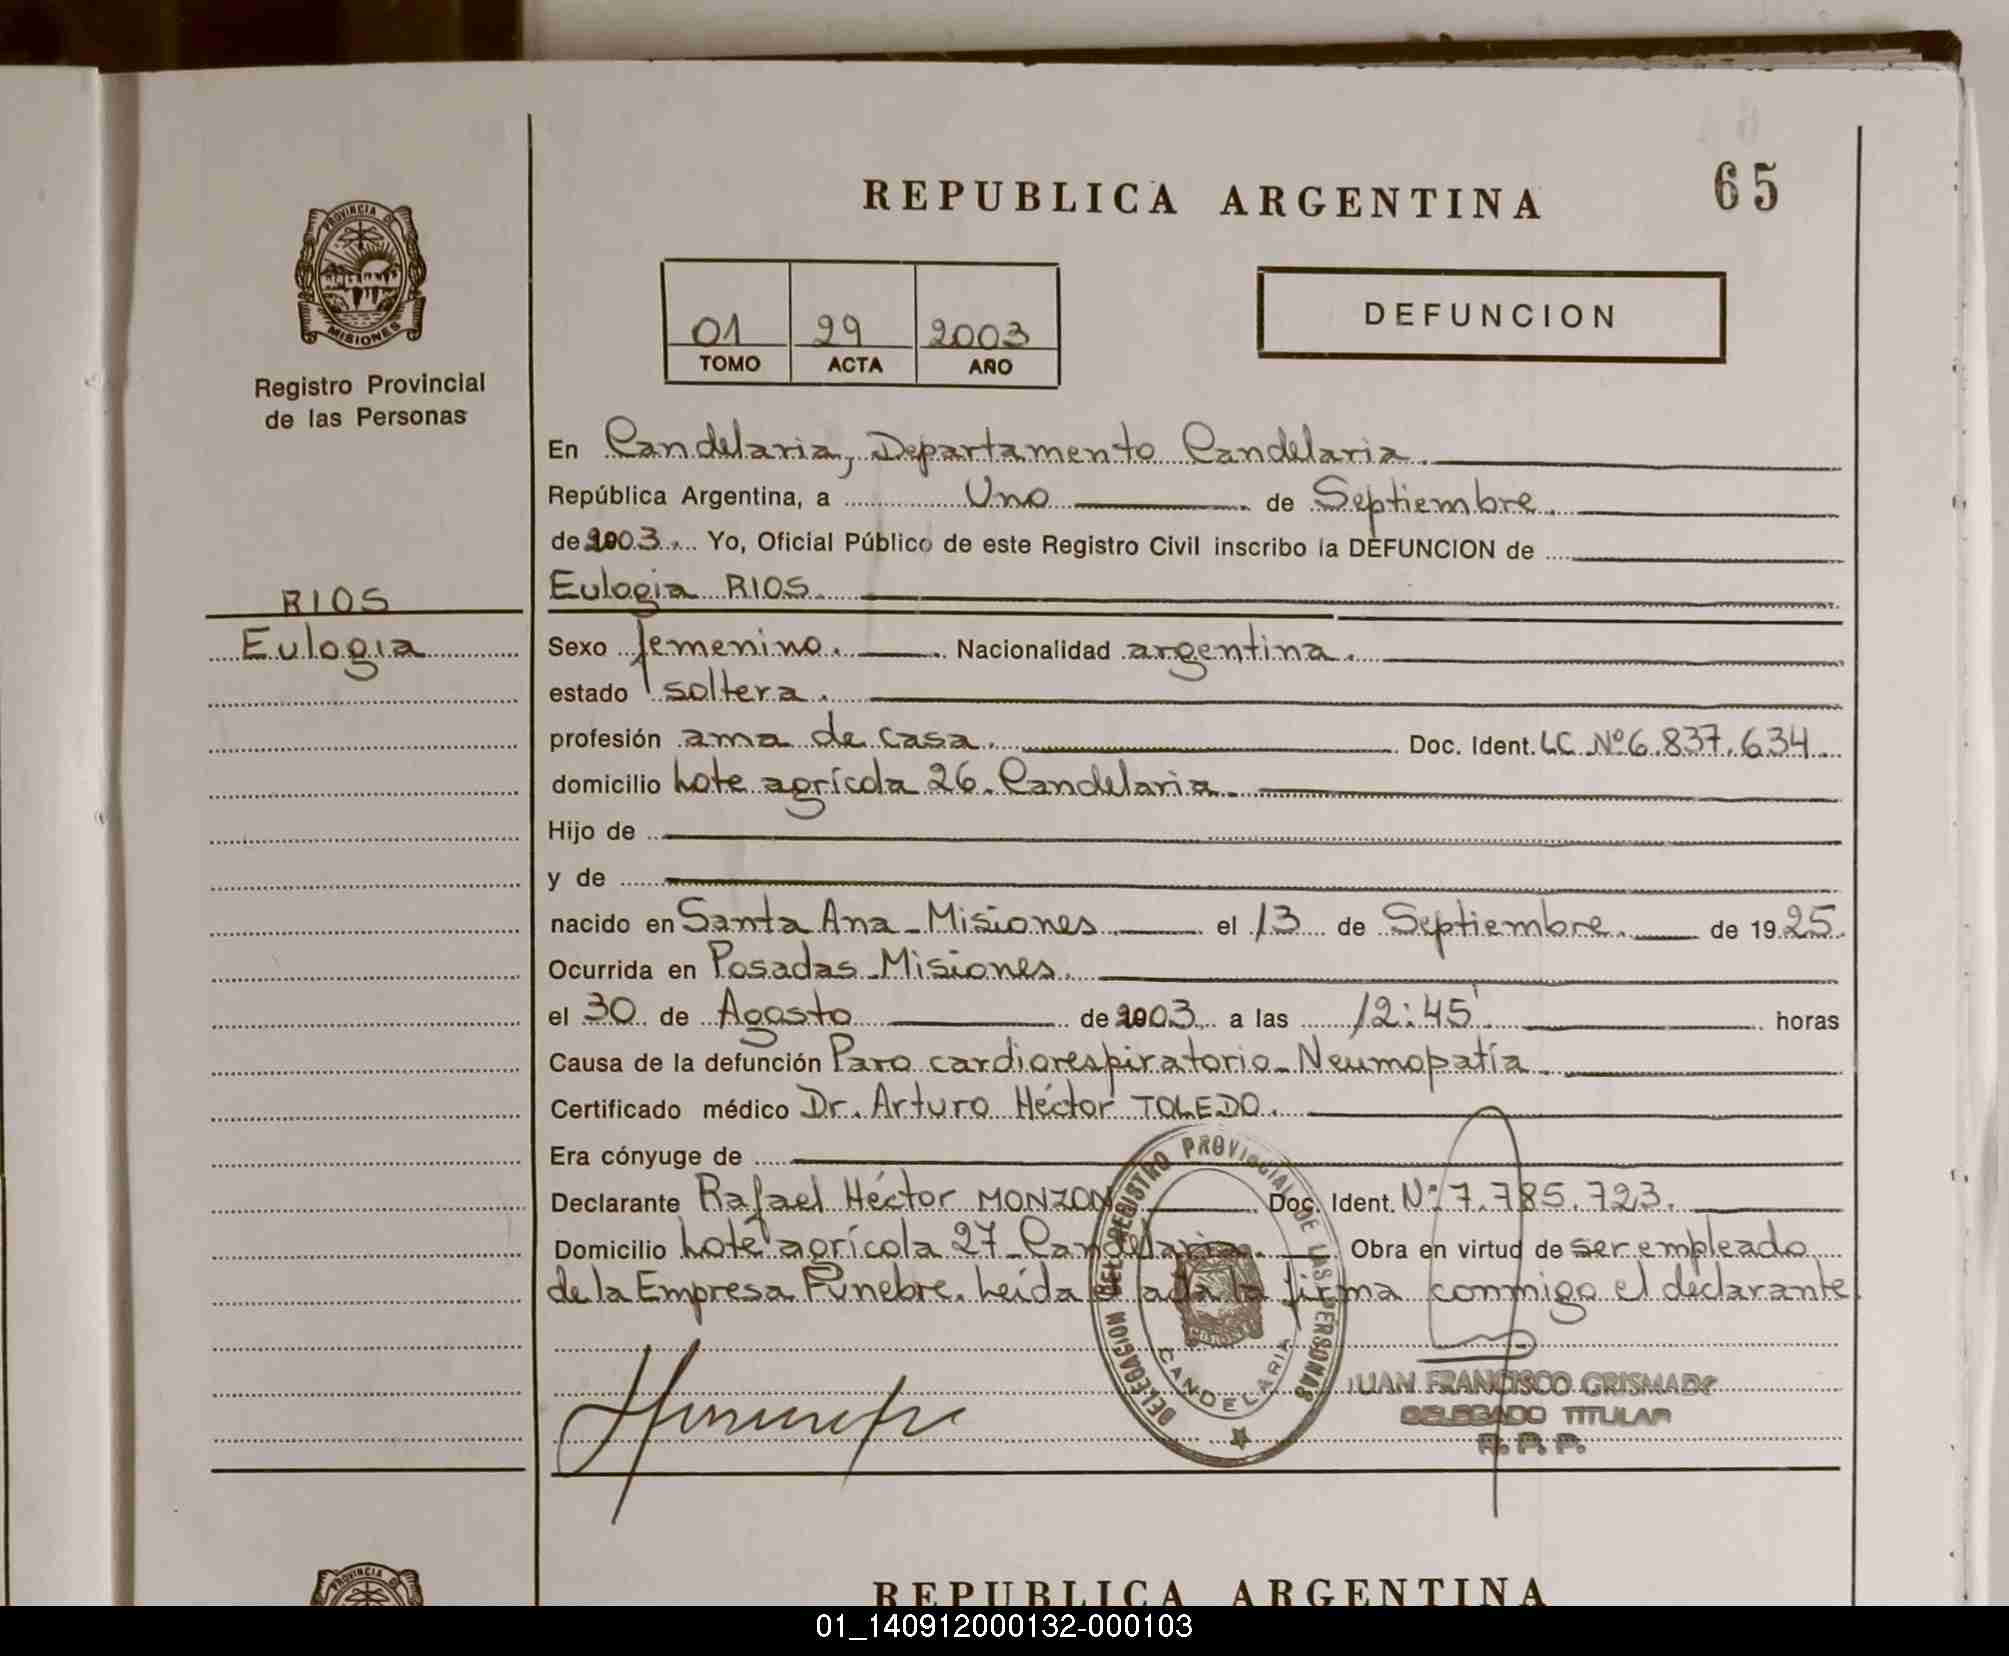 65
REPUBLICA ARGENTINA
PROVINCIA DE
MISIONES
Registro Provincial
de las Personas
01 29 2003
TOMO ACTA AÑO
DEFUNCION
En Candelaria, Departamento Candelaria.
República Argentina, a Uno de Septiembre.
de 2003. Yo, Oficial Público de este Registro Civil inscribo la DEFUNCION de
Eulogia RIOS.
RIOS
Eulogia
Sexo femenino. Nacionalidad argentina.
estado soltera.
profesión ama de casa. Doc. Ident. LC Nº 6.837.634
domicilio Lote agrícola 26. Candelaria.
Hijo de
y de
nacido en Santa Ana - Misiones el 13 de Septiembre. de 1925.
Ocurrida en Posadas - Misiones.
el 30 de Agosto de 2003 a las 12:45' horas
Causa de la defunción Paro cardiorespiratorio - Neumopatía.
Certificado médico Dr. Arturo Héctor TOLEDO.
Era cónyuge de
Declarante Rafael Héctor MONZON Doc. Ident. Nº 7.785.723.
Domicilio Lote agrícola 27 - Candelaria. Obra en virtud de ser empleado
de la Empresa Fúnebre. Leída el acta la firma conmigo el declarante.
DELEGACION DEL REGISTRO PROVINCIAL DE LAS PERSONAS
CANDELARIA
JUAN FRANCISCO GRISMADO
DELEGADO TITULAR
R. P. P.
PROVINCIA DE
REPUBLICA ARGENTINA
01_140912000132-000103